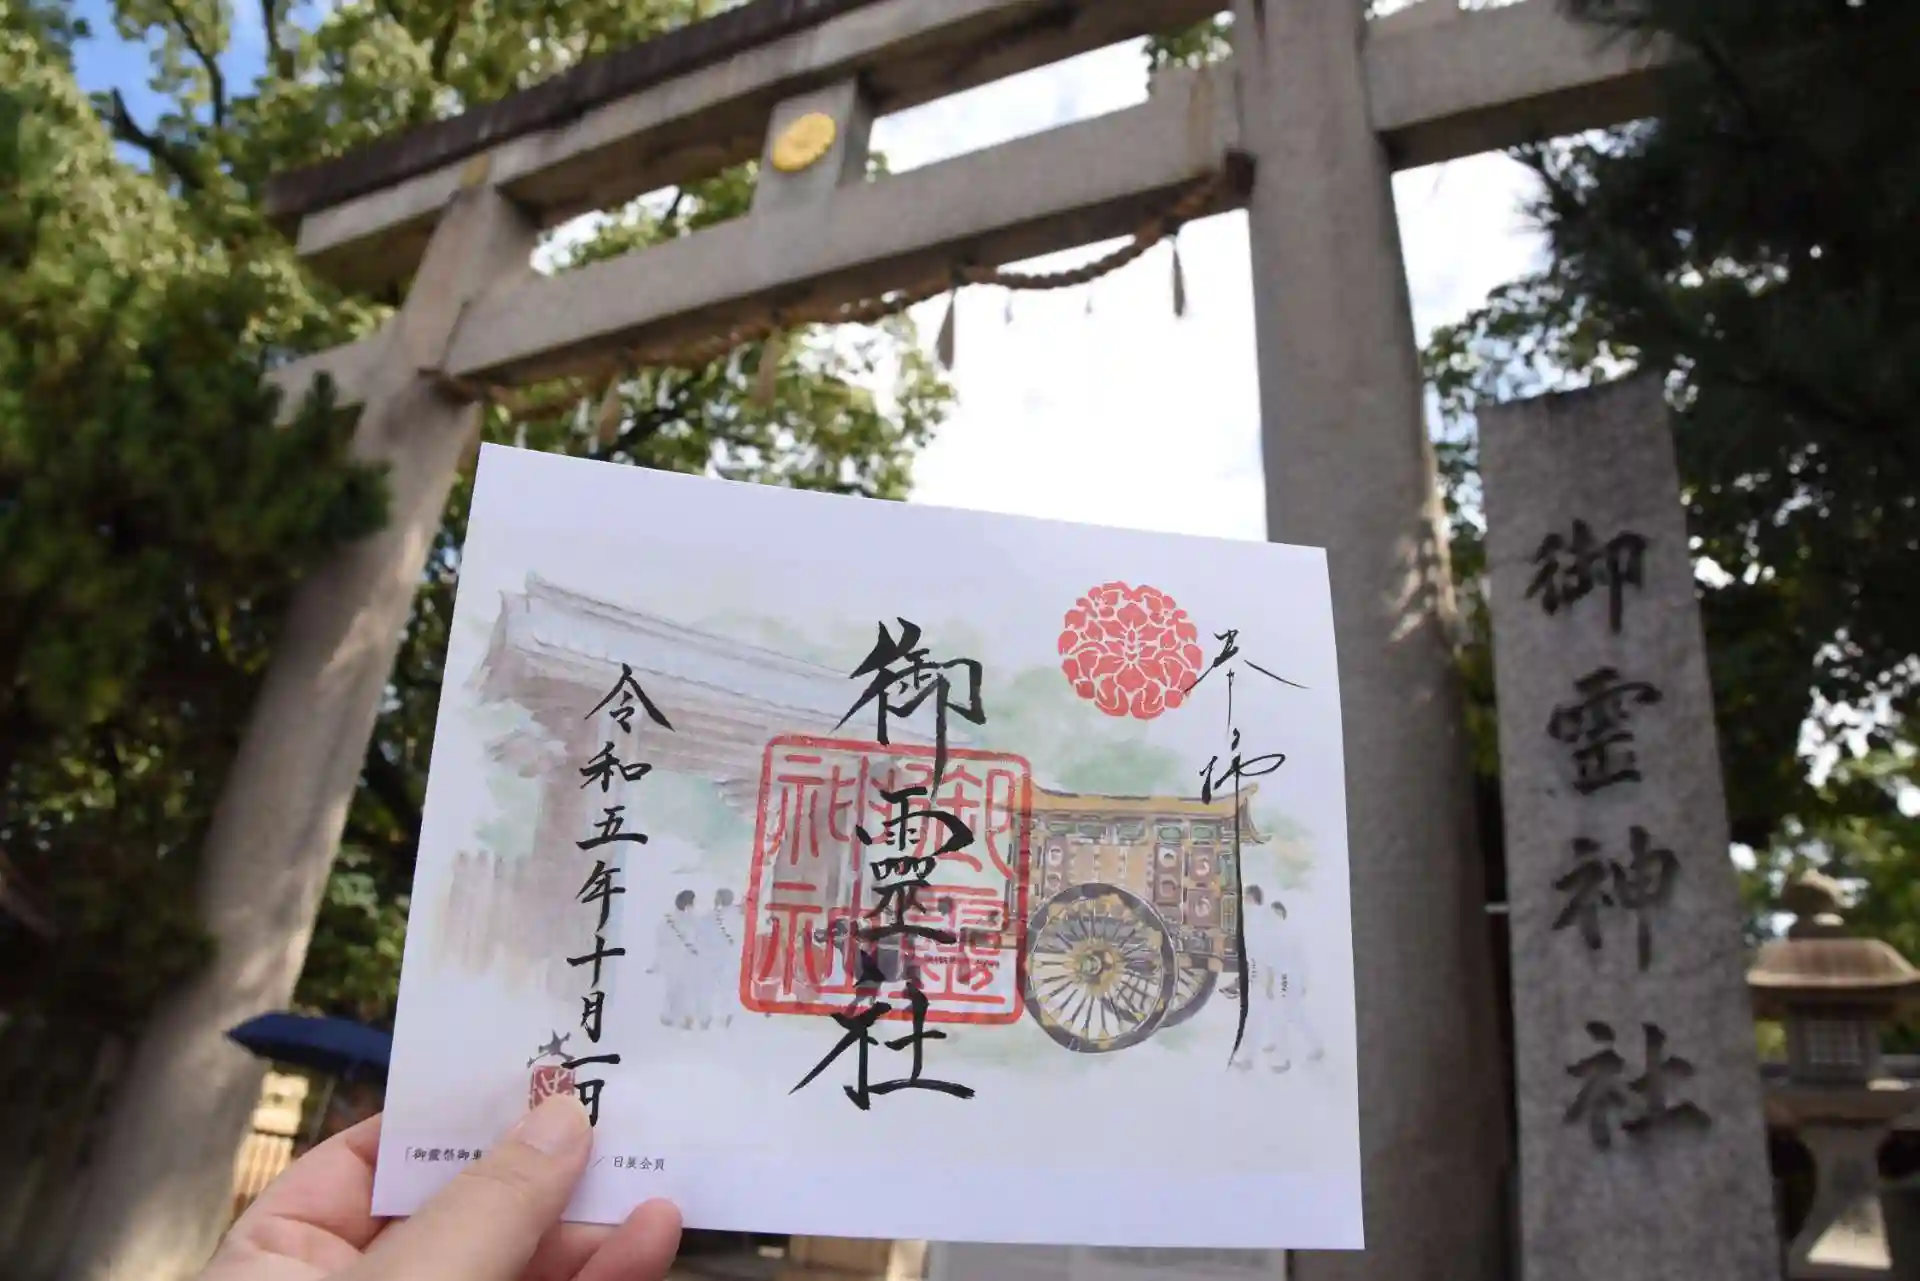 奉拝
御靈社
御霊社
令和五年十月一日
「御霊祭御車
/ 日展会員
御霊神社